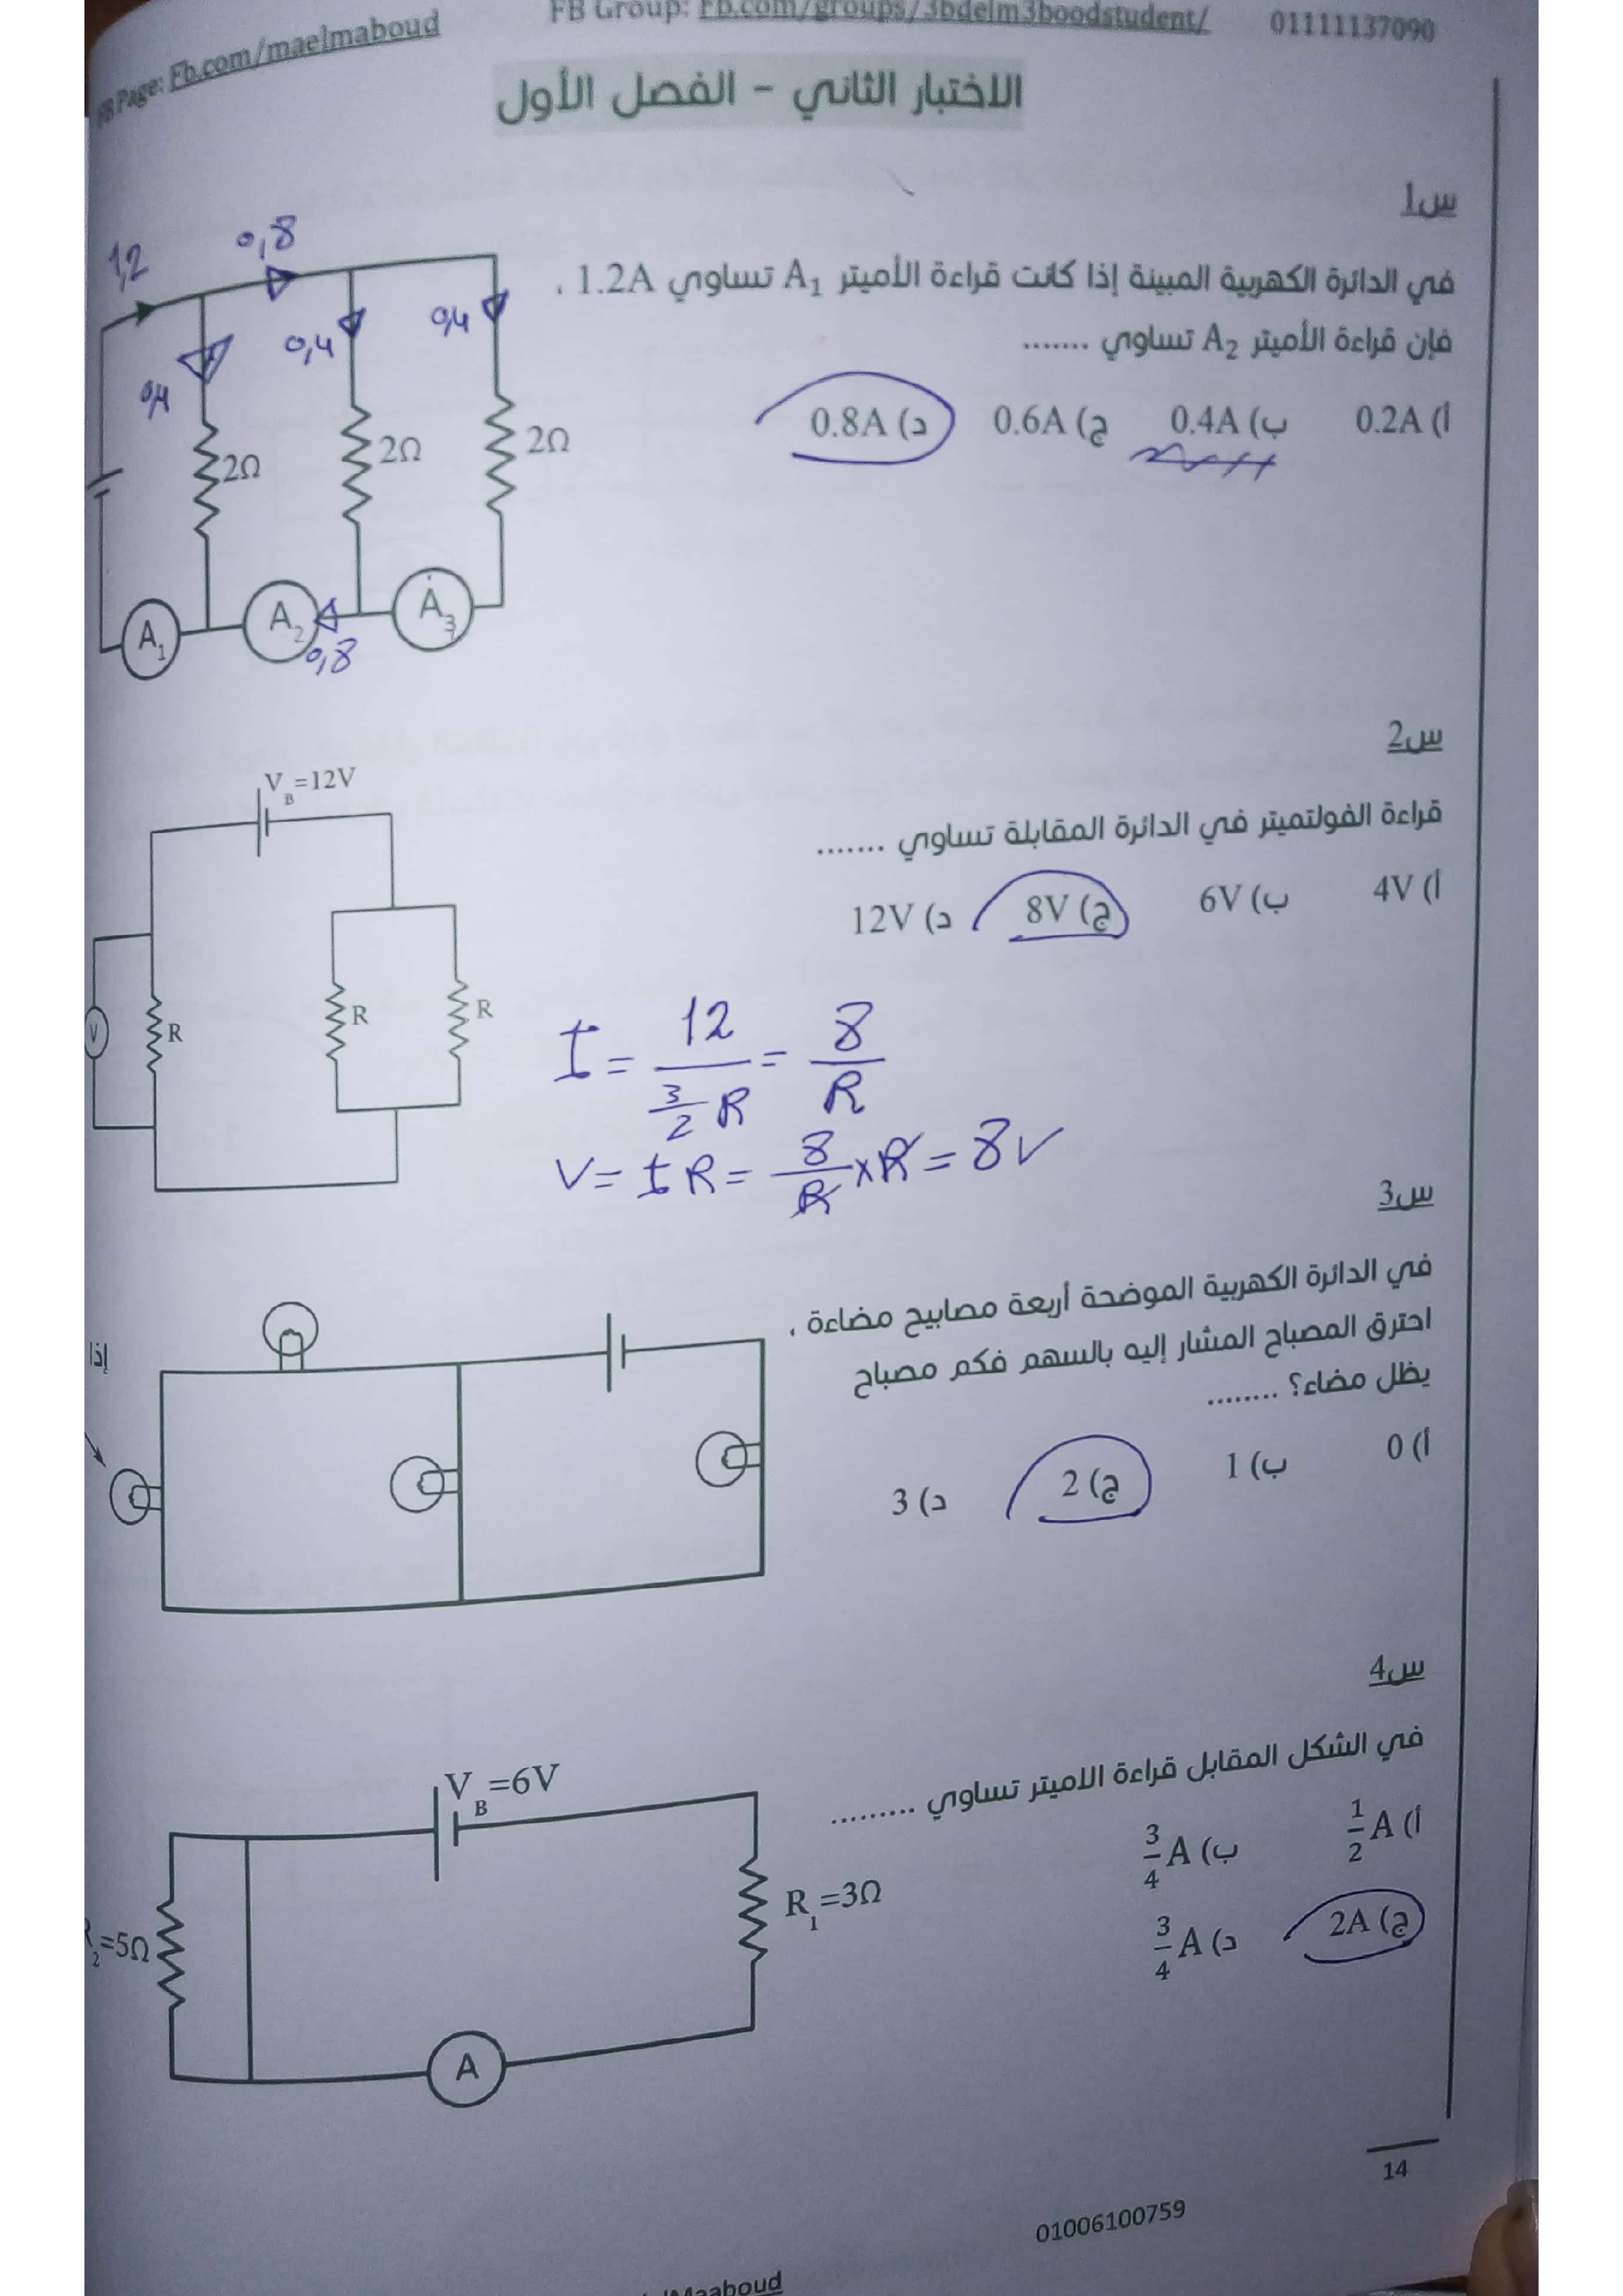 FB Page: Fb.com/maelmaboud
FB Group: Fb.com/groups/3bdelm3boodstudent/
01111137090
الاختبار الثاني - الفصل الأول
س1
في الدائرة الكهربية المبينة إذا كانت قراءة الأميتر A₁ تساوي 1.2A ،
فإن قراءة الأميتر A₂ تساوي .......
أ) 0.2A ب) 0.4A ج) 0.6A د) 0.8A
1,2
0,8
0,4
0,4
0,4
2Ω
2Ω
2Ω
A₁
A₂
A₃
0,8
س2
V_B=12V
قراءة الفولتميتر في الدائرة المقابلة تساوي .......
أ) 4V ب) 6V ج) 8V د) 12V
V
R
R
R
I = 12 / (3/2 R) = 8/R
V = I R = 8/R × R = 8V
س3
في الدائرة الكهربية الموضحة أربعة مصابيح مضاءة ،
إذا
احترق المصباح المشار إليه بالسهم فكم مصباح
يظل مضاء؟ ........
أ) 0 ب) 1 ج) 2 د) 3
س4
في الشكل المقابل قراءة الاميتر تساوي .........
أ) 1/2 A ب) 3/4 A
ج) 2A د) 3/4 A
V_B=6V
R₁=3Ω
R₂=5Ω
A
14
01006100759